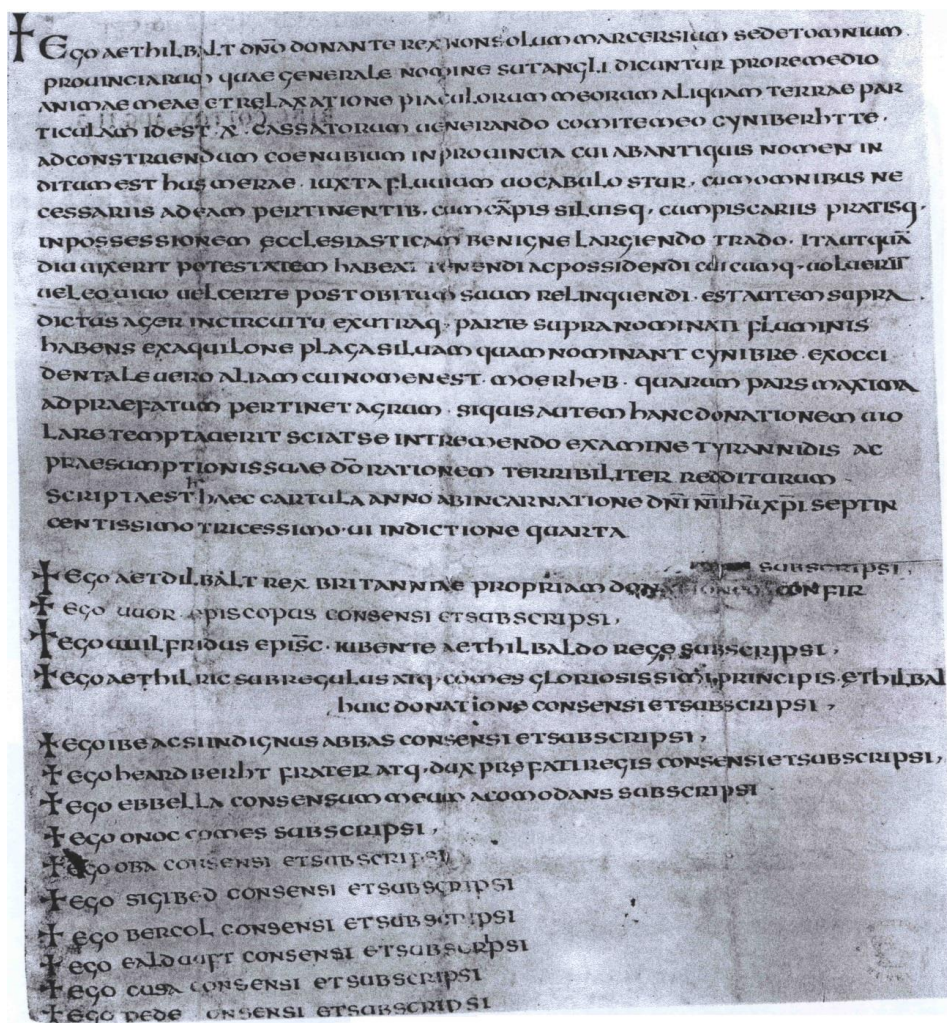 ✝ Ego aethilbalt dno donante rex non solum marcersium sed et omnium
prouinciarum quae generale nomine sutangli dicuntur pro remedio
animae meae et relaxatione piaculorum meorum aliquam terrae par
ticulam id est · x · cassatorum uenerando comite meo cyniberhtte ·
ad construendum coenubium in prouincia cui ab antiquis nomen in
ditum est husmerae · iuxta fluuium uocabulo stur · cum omnibus ne
cessariis ad eam pertinentib · cum capis siluisq · cum piscariis pratisq ·
in possessionem ecclesiasticam benigne largiendo trado · ita ut qua
diu uixerit potestatem habeat tenendi ac possidendi cuicumq · uoluerit
uel eo uiuo uel certe post obitum suum relinquendi · est autem supra
dictus ager in circuitu ex utraq · parte supranominati fluminis
habens ex aquilone plaga siluam quam nominant cynibre · ex occi
dentale uero aliam cui nomen est · moerheb · quarum pars maxima
ad praefatum pertinet agrum · siquis autem hanc donationem uio
lare temptauerit sciat se in tremendo examine tyrannidis ac
praesumptionis suae do rationem terribiliter redditurum ·
scripta est haec cartula anno ab incarnatione dni nri ihu xpi septin
centissimo tricessimo · ui indictione quarta
subscripsi ,
✝ Ego aetdilbalt rex britanniae propriam donationem confir
✝ ego uuor episcopus consensi et subscripsi ,
✝ ego uuilfridus episc · iubente aethilbaldo rege subscripsi ,
✝ ego aethilric subregulus atq · comes gloriosissimi principis ethilbal
huic donatione consensi et subscripsi ,
✝ ego ibe acsi indignus abbas consensi et subscripsi ,
✝ ego heardberht frater atq · dux prefati regis consensi et subscripsi ,
✝ ego ebbella consensum meum acomodans subscripsi
✝ ego onoc comes subscripsi ,
✝ ego oba consensi et subscripsi
✝ ego sigibed consensi et subscripsi
✝ ego bercol consensi et subscripsi
✝ ego ealduuft consensi et subscripsi
✝ ego cusa consensi et subscripsi
✝ ego pede consensi et subscripsi